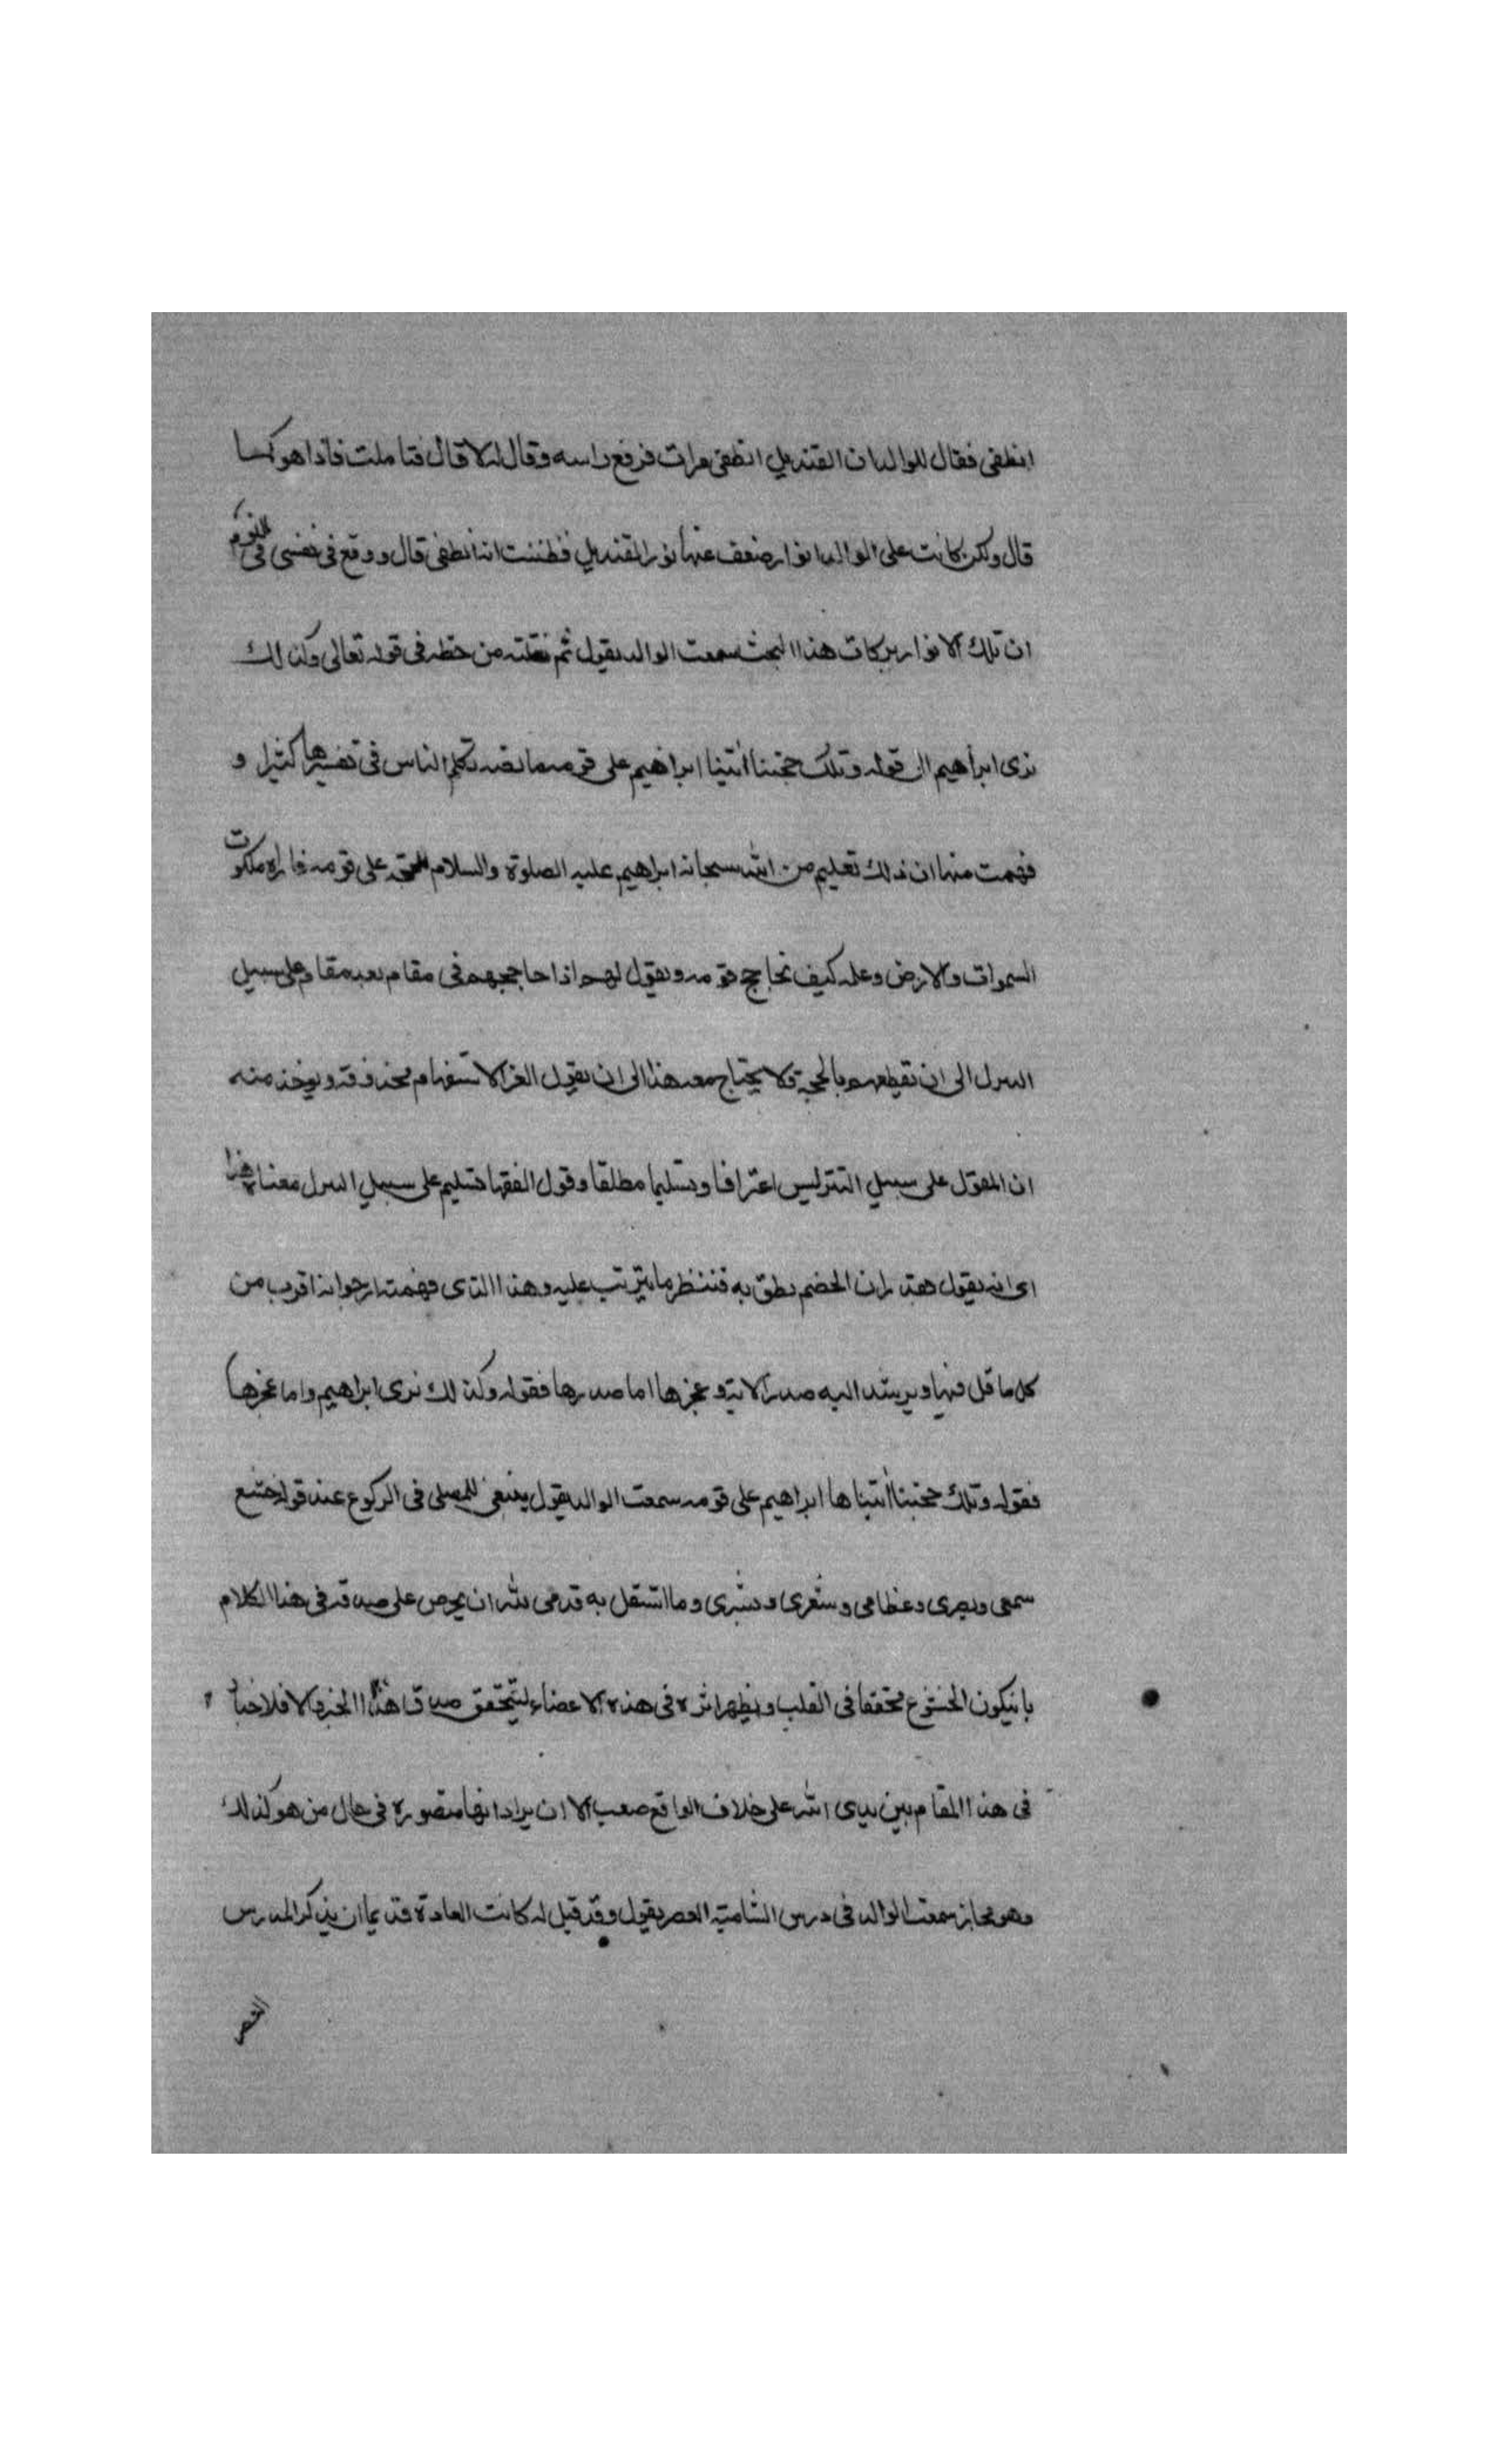 انطفى فقال للوالد ان القنديل انطفى مرات فرفع راسه وقال له لا قال فتاملت فاذا هو كما
قال ولكن كانت على الوالد انوار ضعف عنها نور القنديل فظننت انه انطفى قال ووقع في نفسي في النوم
ان تلك الانوار بركات هذا البحث سمعت الوالد يقول ثم نقلته من خطه في قوله تعالى وكذلك
نرى ابراهيم الى قوله وتلك حجتنا اتينا ابراهيم على قومه ما نصه تكلم الناس في تفسيرها كثيرا و
فهمت منها ان ذلك تعليم من الله سبحانه ابراهيم عليه الصلوة والسلام الحجة على قومه فاراه ملكوت
السموات والارض وعلمه كيف يحاجج قومه ويقول لهم اذا حاججهم في مقام بعد مقام على سبيل
التنزل الى ان تقطعهم بالحجة ولا يحتاج معه هذا الى ان يقول الف الاستفهام محذوفة ويوخذ منه
ان القول على سبيل التنزل ليس اعترافا وتسليما مطلقا وقول الفقها تسليم على سبيل التنزل معناه هذا
اى انه يقول يقدر ان الخصم نطق به فننظر ما يترتب عليه وهذا الذى فهمته ارجو انه اقرب من
كل ما قيل فيها ويرشد اليه صدر الاية وعجزها اما صدرها فقوله وكذلك نرى ابراهيم واما عجزها
فقوله وتلك حجتنا اتيناها ابراهيم على قومه سمعت الوالد يقول ينبغى للمصلى في الركوع عند قوله خشع
سمعى وبصرى وعظامى وشعرى وبشرى وما استقل به قدمى لله ان يحرص على صدقه في هذا الكلام
بان يكون الخشوع محققا في القلب ويظهر اثره في هذه الاعضاء ليتحقق صدق هذا الخبر والا فالاخبار
في هذا المقام بين يدى الله على خلاف الواقع صعب الا ان يراد انها متصورة في حال من هو كذلك
وهو مجاز سمعت الوالد في درس الشامية العصر يقول وقد قيل له كانت العادة قديما ان يذكر المدرس